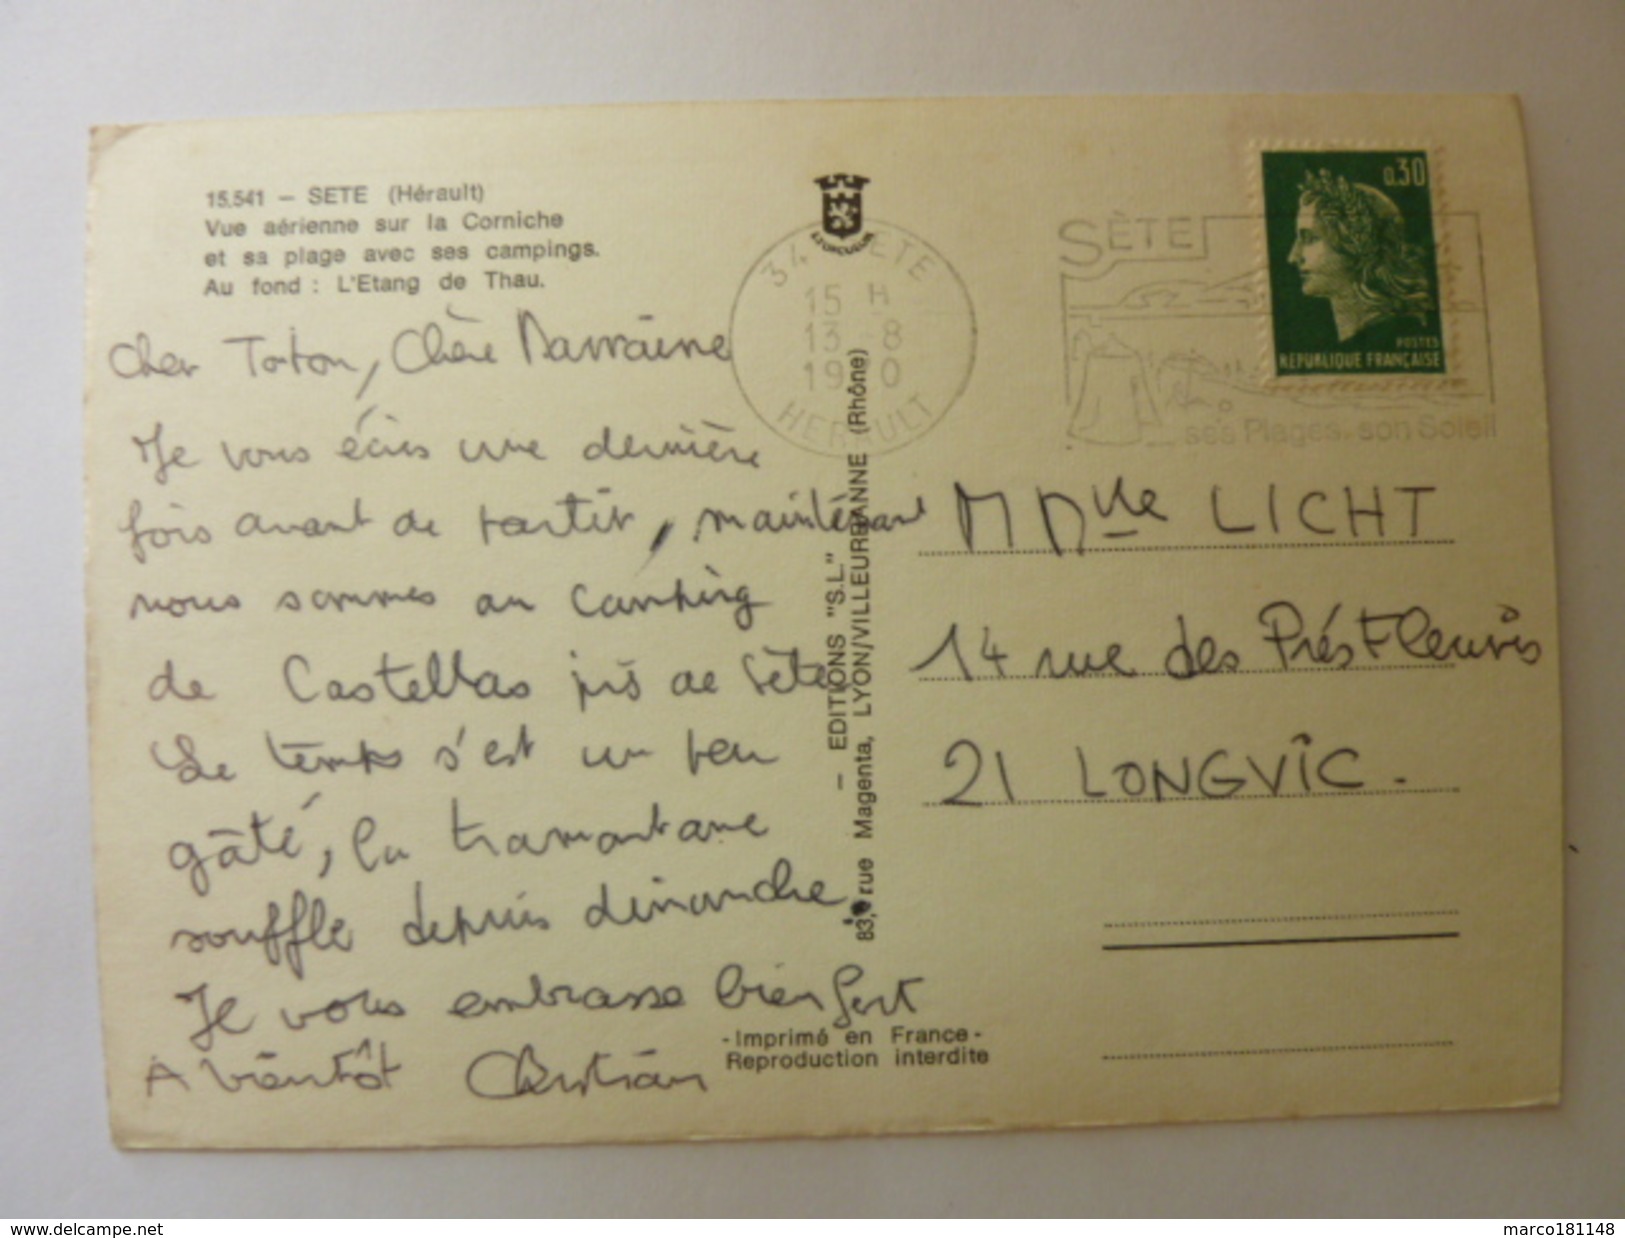 15.541 — SETE (Hérault)
Vue aérienne sur la Corniche
et sa plage avec ses campings.
Au fond : L'Etang de Thau.
Cher Tonton, Chère Marraine
Je vous écris une dernière
fois avant de partir, maintenant
nous sommes au camping
de Castellas près de Sète
Le temps s'est un peu
gâté, la tramontane
souffle depuis dimanche
Je vous embrasse bien fort
A bientôt Christian
34 SETE
15 H
13 -8
19 0
HERAULT
— EDITIONS "S.L." —
83, rue Magenta, LYON/VILLEURBANNE (Rhône)
-Imprimé en France-
Reproduction interdite
0.30
POSTES
REPUBLIQUE FRANÇAISE
SÈTE
ses Plages, son Soleil
M Mme LICHT
14 rue des Prés Fleuris
21 LONGVIC.
www.delcampe.net
marco181148